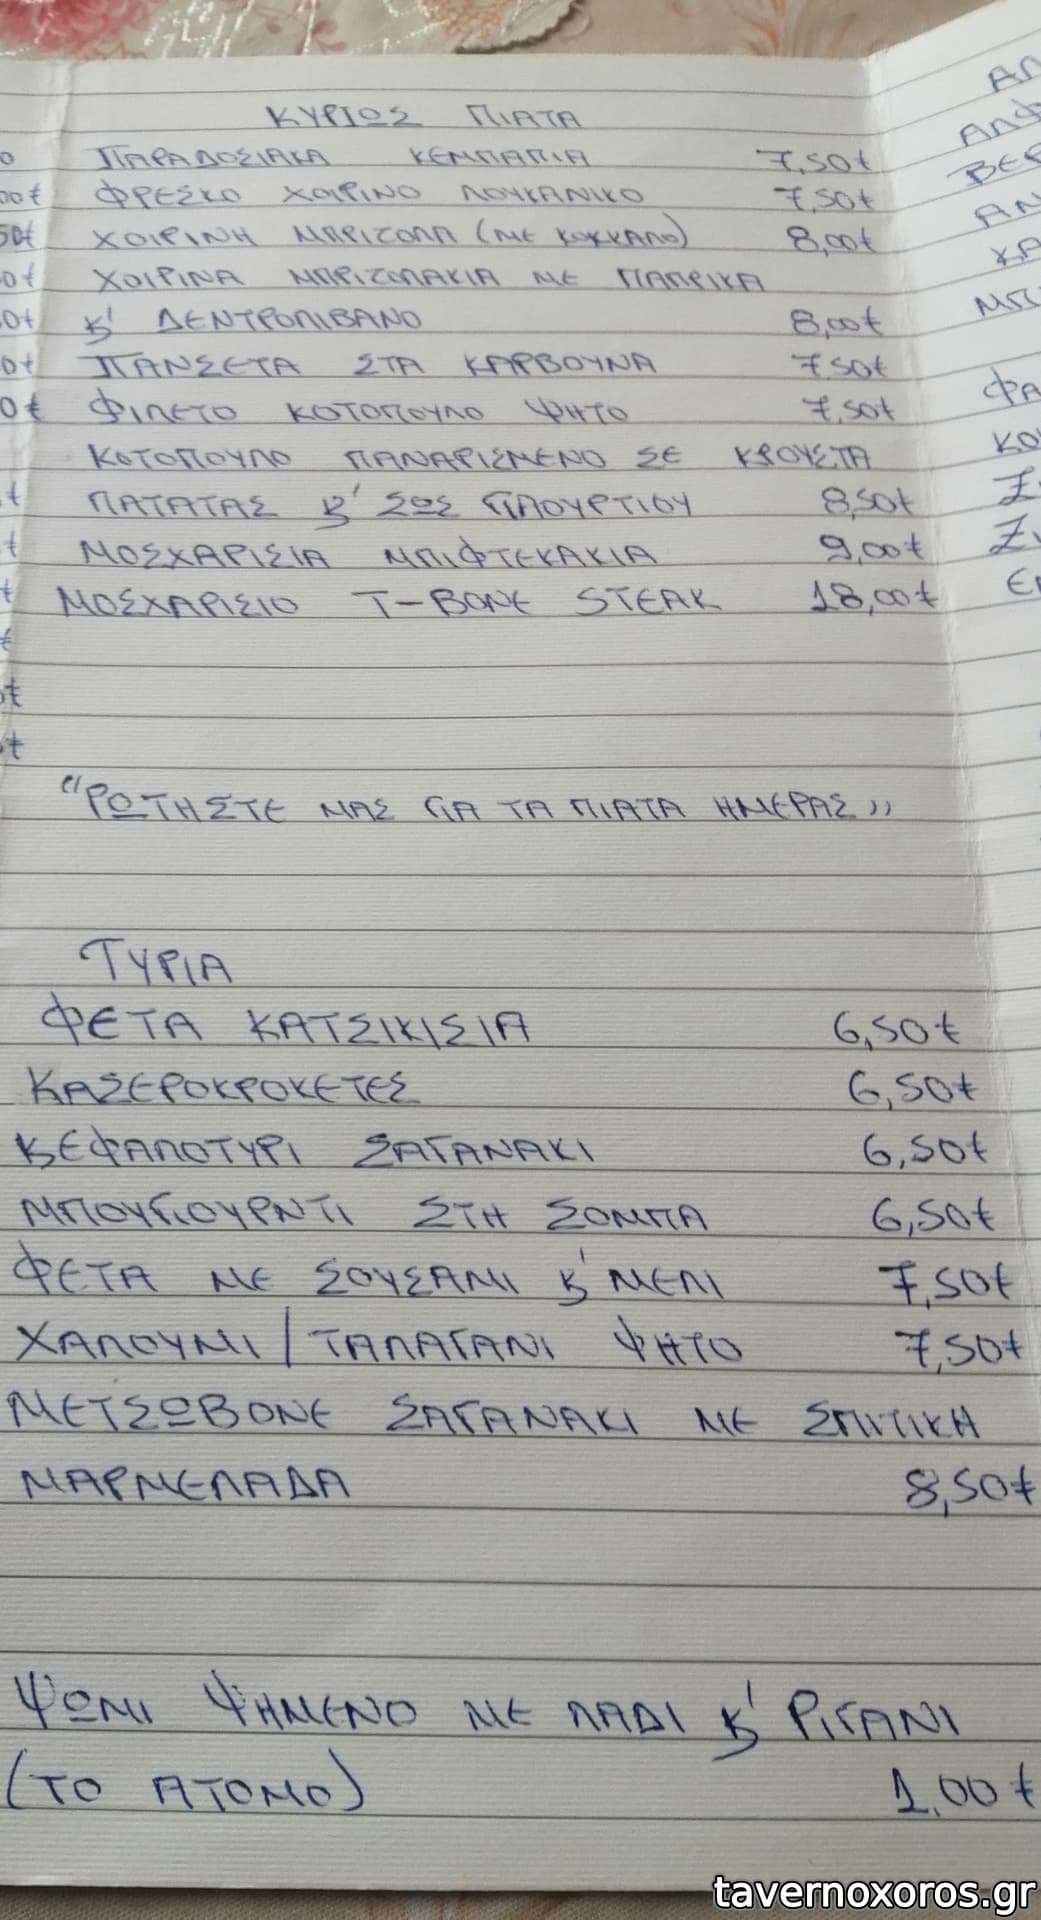 ΚΥΡΙΩΣ ΠΙΑΤΑ
ΠΑΡΑΔΟΣΙΑΚΑ ΚΕΜΠΑΠΙΑ 7,50€
ΦΡΕΣΚΟ ΧΟΙΡΙΝΟ ΛΟΥΚΑΝΙΚΟ 7,50€
ΧΟΙΡΙΝΗ ΜΠΡΙΖΟΛΑ (ΜΕ ΚΟΚΚΑΛΟ) 8,00€
ΧΟΙΡΙΝΑ ΜΠΡΙΖΟΛΑΚΙΑ ΜΕ ΠΑΠΡΙΚΑ
Κ' ΔΕΝΤΡΟΛΙΒΑΝΟ 8,00€
ΠΑΝΣΕΤΑ ΣΤΑ ΚΑΡΒΟΥΝΑ 7,50€
ΦΙΛΕΤΟ ΚΟΤΟΠΟΥΛΟ ΨΗΤΟ 7,50€
ΚΟΤΟΠΟΥΛΟ ΠΑΝΑΡΙΣΜΕΝΟ ΣΕ ΚΡΟΥΣΤΑ
ΠΑΤΑΤΑΣ Κ' ΣΩΣ ΓΙΑΟΥΡΤΙΟΥ 8,50€
ΜΟΣΧΑΡΙΣΙΑ ΜΠΙΦΤΕΚΑΚΙΑ 9,00€
ΜΟΣΧΑΡΙΣΙΟ T-BONE STEAK 18,00€
"ΡΩΤΗΣΤΕ ΜΑΣ ΓΙΑ ΤΑ ΠΙΑΤΑ ΗΜΕΡΑΣ"
ΤΥΡΙΑ
ΦΕΤΑ ΚΑΤΣΙΚΙΣΙΑ 6,50€
ΚΑΣΕΡΟΚΡΟΚΕΤΕΣ 6,50€
ΚΕΦΑΛΟΤΥΡΙ ΣΑΓΑΝΑΚΙ 6,50€
ΜΠΟΥΓΙΟΥΡΝΤΙ ΣΤΗ ΣΟΜΠΑ 6,50€
ΦΕΤΑ ΜΕ ΣΟΥΣΑΜΙ Κ' ΜΕΛΙ 7,50€
ΧΑΛΟΥΜΙ / ΤΑΛΑΓΑΝΙ ΨΗΤΟ 7,50€
ΜΕΤΣΩΒΟΝΕ ΣΑΓΑΝΑΚΙ ΜΕ ΣΠΙΤΙΚΗ
ΜΑΡΜΕΛΑΔΑ 8,50€
ΨΩΜΙ ΨΗΜΕΝΟ ΜΕ ΛΑΔΙ Κ' ΡΙΓΑΝΙ
(ΤΟ ΑΤΟΜΟ) 1,00€
tavernoxoros.gr